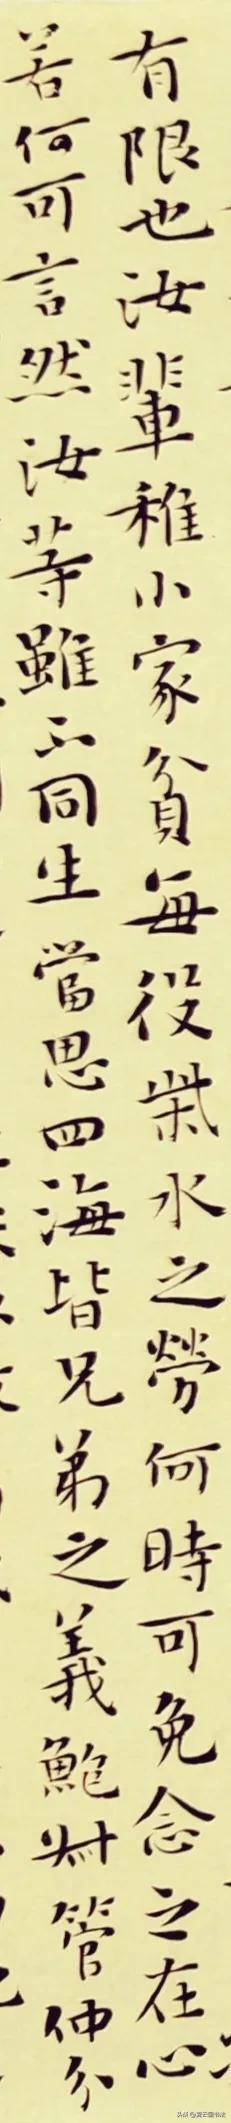 有限也汝輩稚小家貧每役柴水之勞何時可免念之在心
若何可言然汝等雖不同生當思四海皆兄弟之義鮑叔管仲分